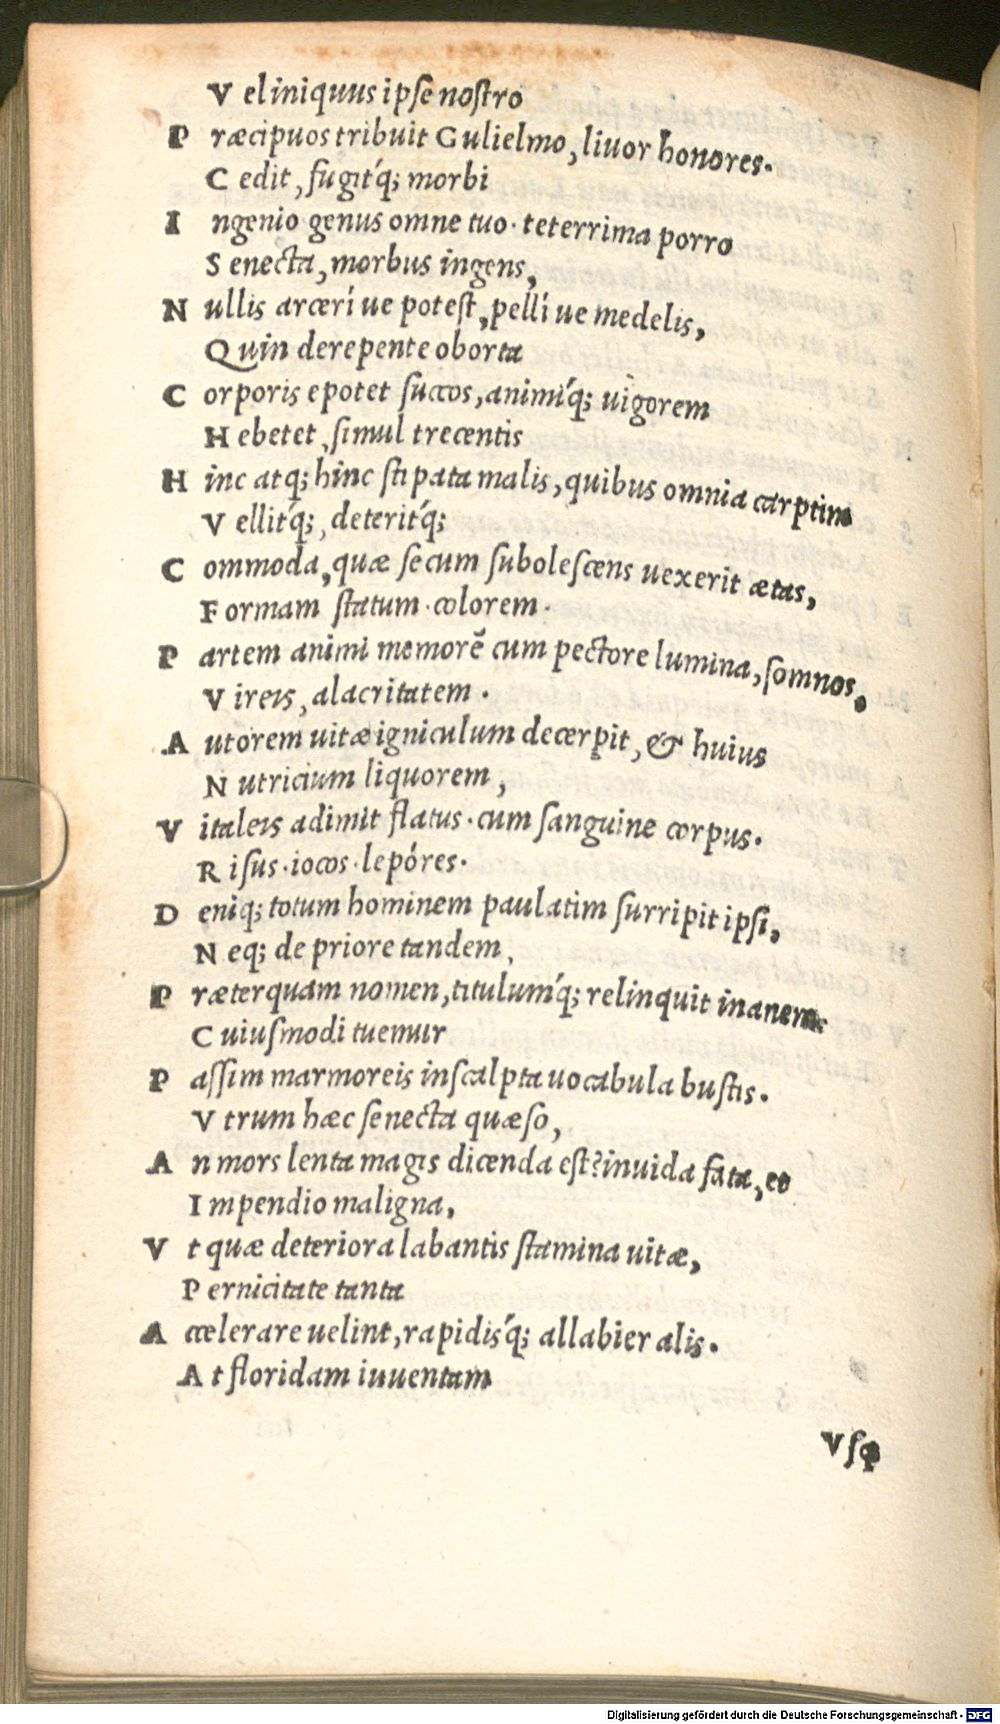 V el iniquus ipse nostro
P ræcipuos tribuit Gulielmo, liuor honores.
C edit, fugit'q; morbi
I ngenio genus omne tuo. teterrima porro
S enecta, morbus ingens,
N ullis arceri ue potest, pelli ue medelis,
Q uin derepente oborta
C orporis epotet succos, animi'q; uigorem
H ebetet, simul trecentis
H inc atq; hinc stipata malis, quibus omnia carptim
V ellit'q;, deterit'q;
C ommoda, quæ secum subolescens uexerit ætas,
F ormam statum. colorem.
P artem animi memorẽ cum pectore lumina, somnos,
V ireis, alacritatem.
A utorem uitæ igniculum decerpit, & huius
N utricium liquorem,
V italeis adimit flatus. cum sanguine corpus.
R isus. iocos. lepóres.
D eniq; totum hominem paulatim surripit ipsi,
N eq; de priore tandem,
P ræterquam nomen, titulum'q; relinquit inanem:
C uiusmodi tuemur
P assim marmoreis inscalpta uocabula bustis.
V trum hæc senecta quæso,
A n mors lenta magis dicenda est? inuida fata, et
I mpendio maligna,
V t quæ deteriora labantis stamina uitæ,
P ernicitate tanta
A ccelerare uelint, rapidis'q; allabier alis.
A t floridam iuuentam
Vsq
Digitalisierung gefördert durch die Deutsche Forschungsgemeinschaft - DFG